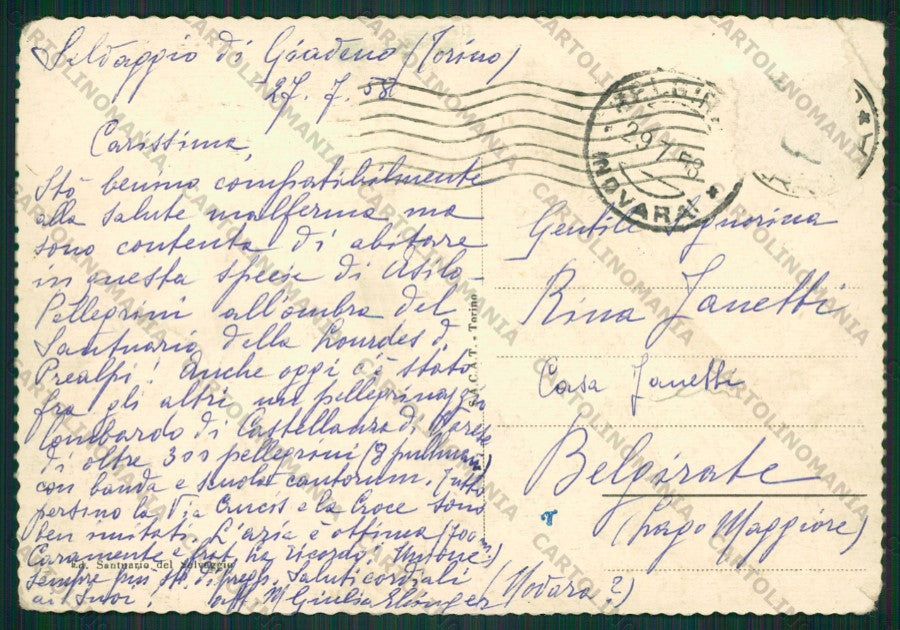 Selvaggio di Giaveno (Torino)
27. 7. 58
Carissima,
Stò benino compatibilmente
alla salute malferma ma
sono contenta di abitare
in questa specie di Asilo
Pellegrini all'ombra del
Santuario della Lourdes di
Prealpi! Anche oggi c'è stato
fra gli altri un pellegrinaggio
lombardo di Castellanza di Varese
di oltre 300 pellegrini (8 pullman)
con banda e scuola cantorum. Tutto
persino la Via Crucis e la Croce sono
ben imitati. L'aria è ottima (700 m.
Caramente ricordo.
49. Santuario del Selvaggio
Sempre più Saluti cordiali
ai suoi! aff. Giulia
S.A.C.A.T. - Torino
BELGIRATE
29.7.58
NOVARA
Gentile Signorina
Rina Zanetti
Casa Zanetti
Belgirate
(Lago Maggiore)
(Novara?)
CARTOLINOMANIA